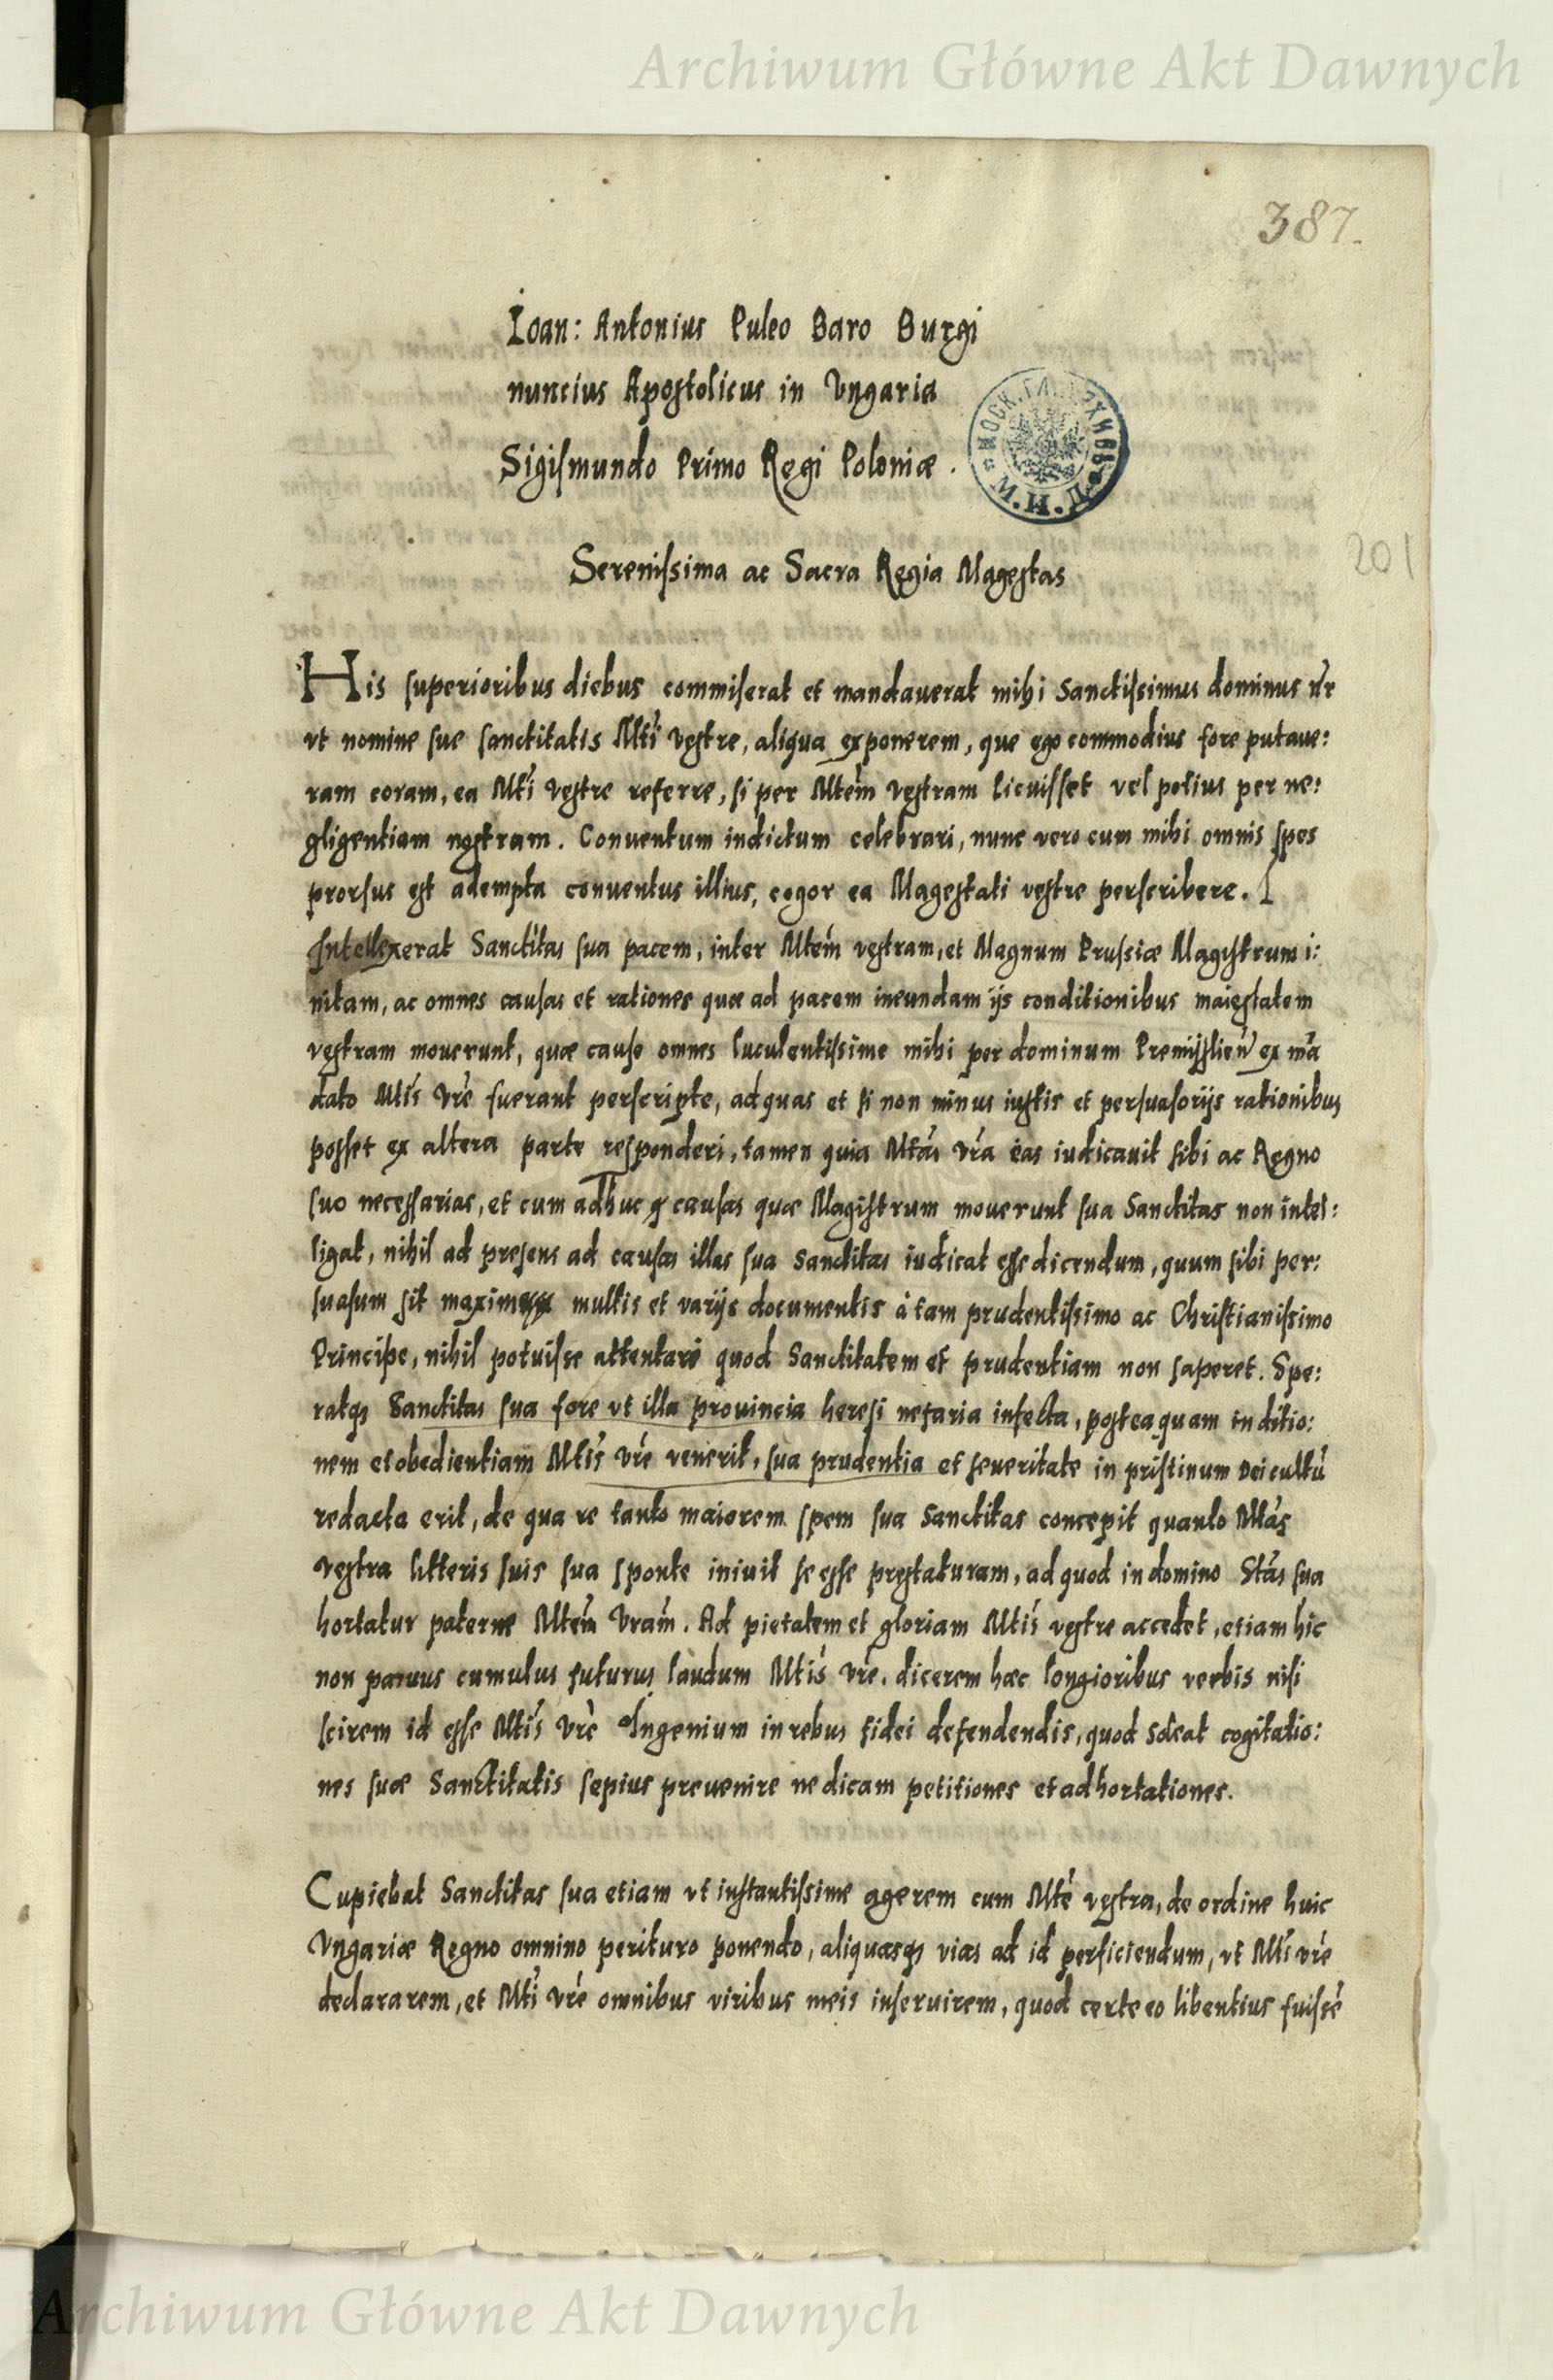 Archiwum Główne Akt Dawnych
387.
Ioan: Antonius Puleo Baro Burgi
nuncius Apostolicus in Vngaria
Sigismundo Primo Regi Poloniæ.
201
Serenissima ac Sacra Regia Magestas
His superioribus diebus commiserat et mandauerat mihi Sanctissimus dominus nr
vt nomine sue sanctitatis Mti vestre, aliqua exponerem, que ego commodius fore putaue:
ram coram, ea Mti vestre referre, si per Mtem vestram licuisset vel potius per ne:
gligentiam nostram. Conuentum indictum celebrari, nunc vero cum mihi omnis spes
prorsus est adempta conuentus illius, cogor ea Magestati vestre perscribere.
Intellexerat Sanctitas sua pacem, inter Mtem vestram, et Magnum Prussiæ Magistrum i:
nitam, ac omnes causas et rationes quæ ad pacem ineundam ijs conditionibus maiestatem
vestram mouerunt, quæ cause omnes luculentissime mihi per dominum Premijslien ex ma
dato Mtis vre fuerant perscripte, ad quas et si non minus iustis et persuasorijs rationibus
posset ex altera parte responderi, tamen quia Mtas vra eas iudicauit sibi ac Regno
suo necessarias, et cum adhuc causas quæ Magistrum mouerunt sua Sanctitas non intel:
ligat, nihil ad presens ad causas illas sua Sanctitas iudicat esse dicendum, quum sibi per:
suasum sit maxim multis et varijs documentis à tam prudentissimo ac Christianissimo
Principe, nihil potuisse attentari quod Sanctitatem et prudentiam non saperet. Spe:
ratqz Sanctitas sua fore vt illa prouincia heresi nefaria infecta, postea quam in ditio:
nem et obedientiam Mtis vre venerit, sua prudentia et seueritate in pristinum Dei cultu
redacta erit, de qua re tanto maiorem spem sua Sanctitas concepit quanto Mtas
vestra litteris suis sua sponte iniuit se esse prestaturam, ad quod in domino Stas sua
hortatur paterne Mtem vram. Ad pietatem et gloriam Mtis vestre accedet, etiam hic
non paruus cumulus futurus laudum Mtis vre. dicerem hæc longioribus verbis nisi
scirem id esse Mtis vre Ingenium in rebus fidei defendendis, quod soleat cogitatio:
nes suæ Sanctitatis sepius preuenire ne dicam petitiones et adhortationes.
Cupiebat Sanctitas sua etiam vt instantissime agerem cum Mte vestra, de ordine huic
Vngariæ Regno omnino perituro ponendo, aliquasqz vias ad id perficiendum, vt Mti vre
declararem, et Mti vre omnibus viribus meis inseruirem, quod certe eo libentius fuisse
Archiwum Główne Akt Dawnych